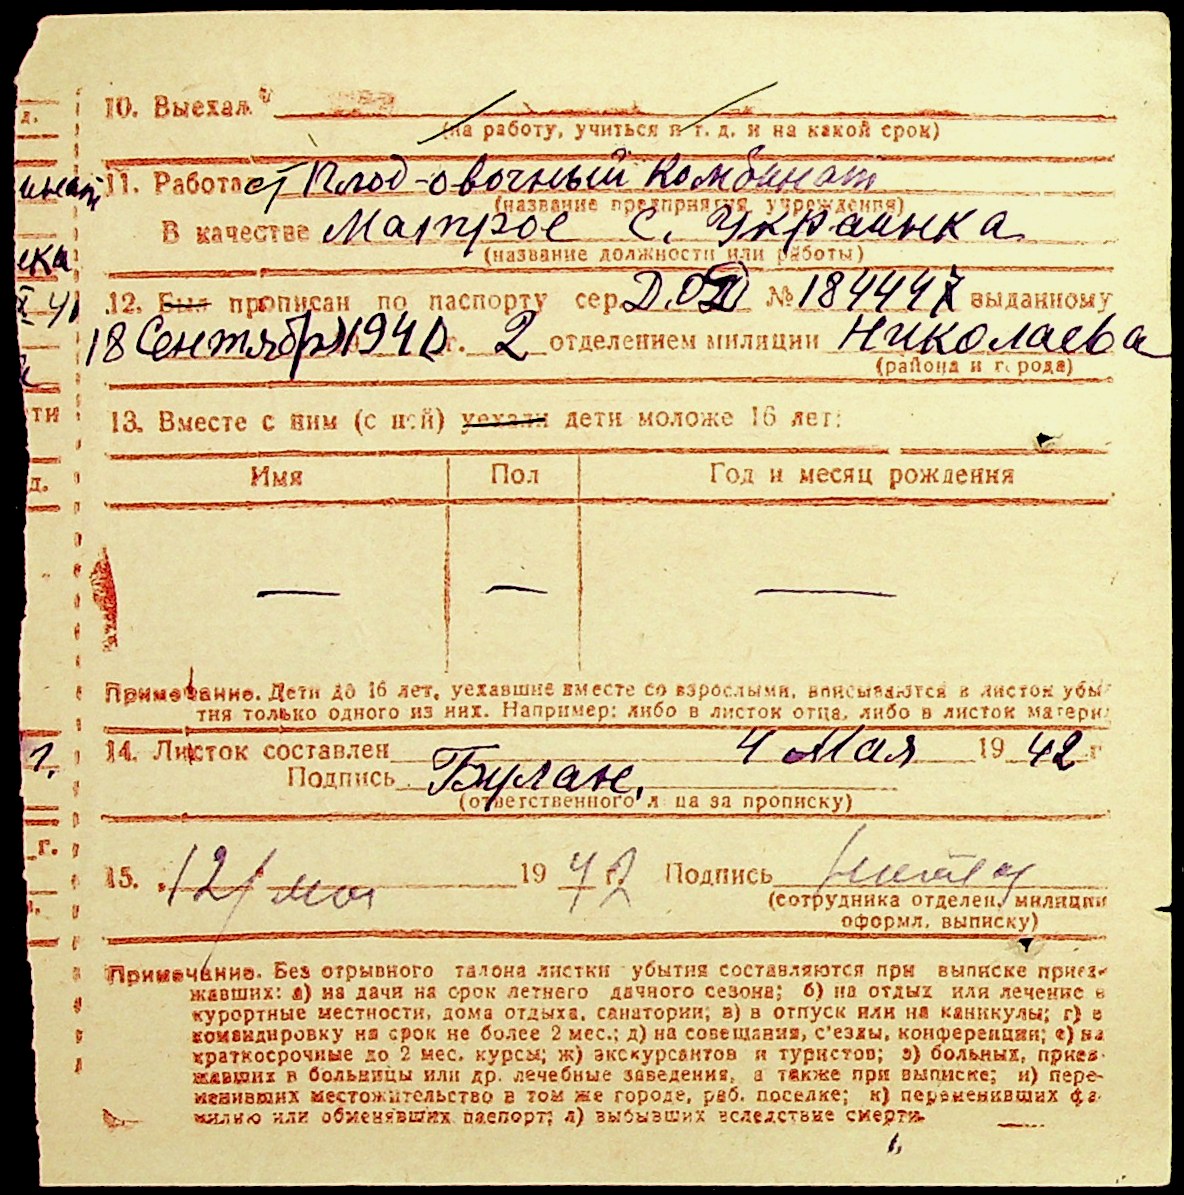 10. Выехал
(на работу, учиться и т. д. и на какой срок)
11. Работает Плод-овочный Комбинат
(название предприятия, учреждения)
В качестве Матрос с. Украинка
(название должности или работы)
12. Был прописан по паспорту сер. № 184447 выданному
18 Сентября 1940 г. 2 отделением милиции Николаева
(района и города)
13. Вместе с ним (с ней) уехали дети моложе 16 лет:
Имя Пол Год и месяц рождения
— — —
Примечание. Дети до 16 лет, уехавшие вместе со взрослыми, вписываются в листок убы-
тия только одного из них. Например: либо в листок отца, либо в листок матери.
14. Листок составлен 4 Мая 1942 г
Подпись Булан,
(ответственного лица за прописку)
15. 12/ мая 1942 Подпись
(сотрудника отделен. милиции
оформл. выписку)
Примечание. Без отрывного талона листки убытия составляются при выписке приез-
жавших: а) на дачи на срок летнего дачного сезона; б) на отдых или лечение в
курортные местности, дома отдыха, санатории; в) в отпуск или на каникулы; г) в
командировку на срок не более 2 мес.; д) на совещания, с'езды, конференции; е) на
краткосрочные до 2 мес. курсы; ж) экскурсантов и туристов; з) больных, приез-
жавших в больницы или др. лечебные заведения, а также при выписке; и) пере-
менивших местожительство в том же городе, раб. поселке; к) переменивших фа-
милию или обменявших паспорт; л) выбывших вследствие смерти.